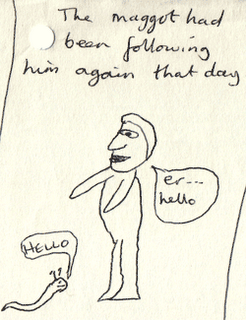 The maggot had
been following
him again that day
er...
hello
HELLO